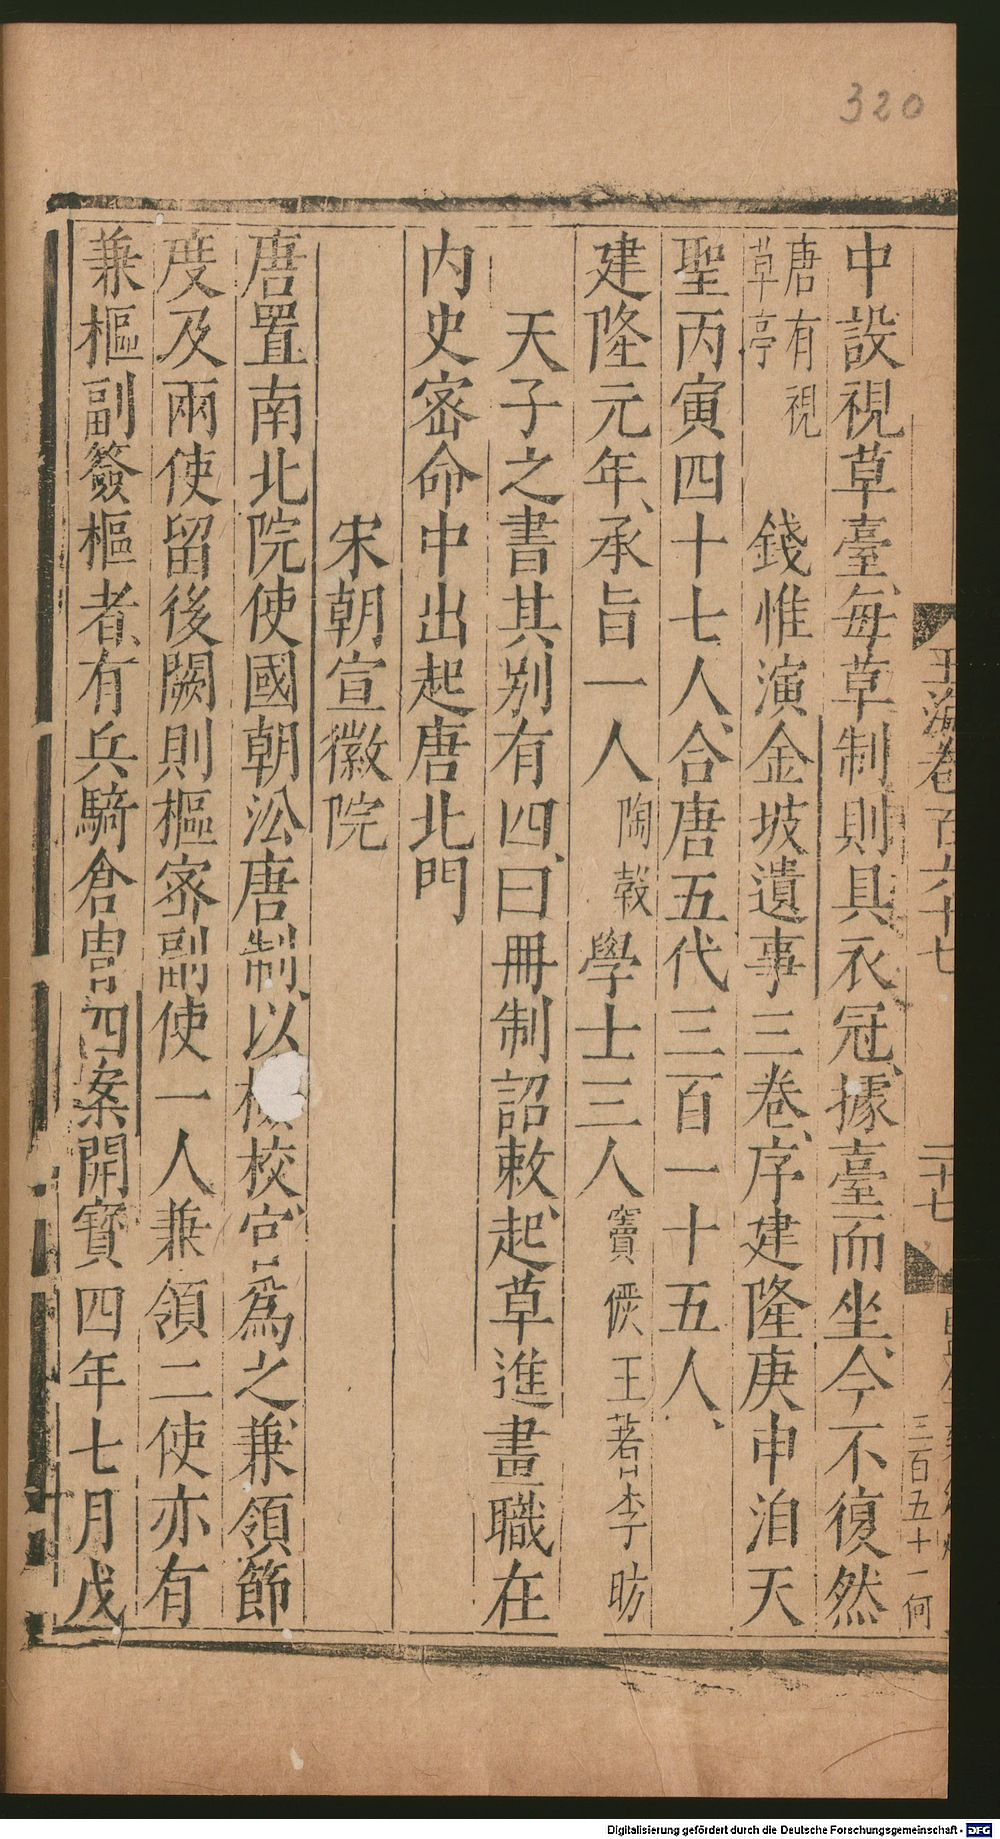 320
中設視草臺、每草制則具衣冠、據臺而坐、今不復然
唐有視
草亭
錢惟演金坡遺事三卷、序建隆庚申洎天
聖丙寅四十七人、合唐五代三百一十五人、
建隆元年、承旨一人陶穀學士三人竇儼王著李昉
天子之書其别有四、曰冊制詔敕、起草進畫職在
内史密命中出起唐北門
宋朝宣徽院
唐置南北院使國朝㳂唐制、以檢校官為之兼領節
度及兩使留後闕則樞密副使一人兼領二使亦有
兼樞副簽樞者、有兵騎倉胄四案開寳四年七月戊
玉海卷百六十七
二十七
三百五十一何
Digitalisierung gefördert durch die Deutsche Forschungsgemeinschaft - DFG